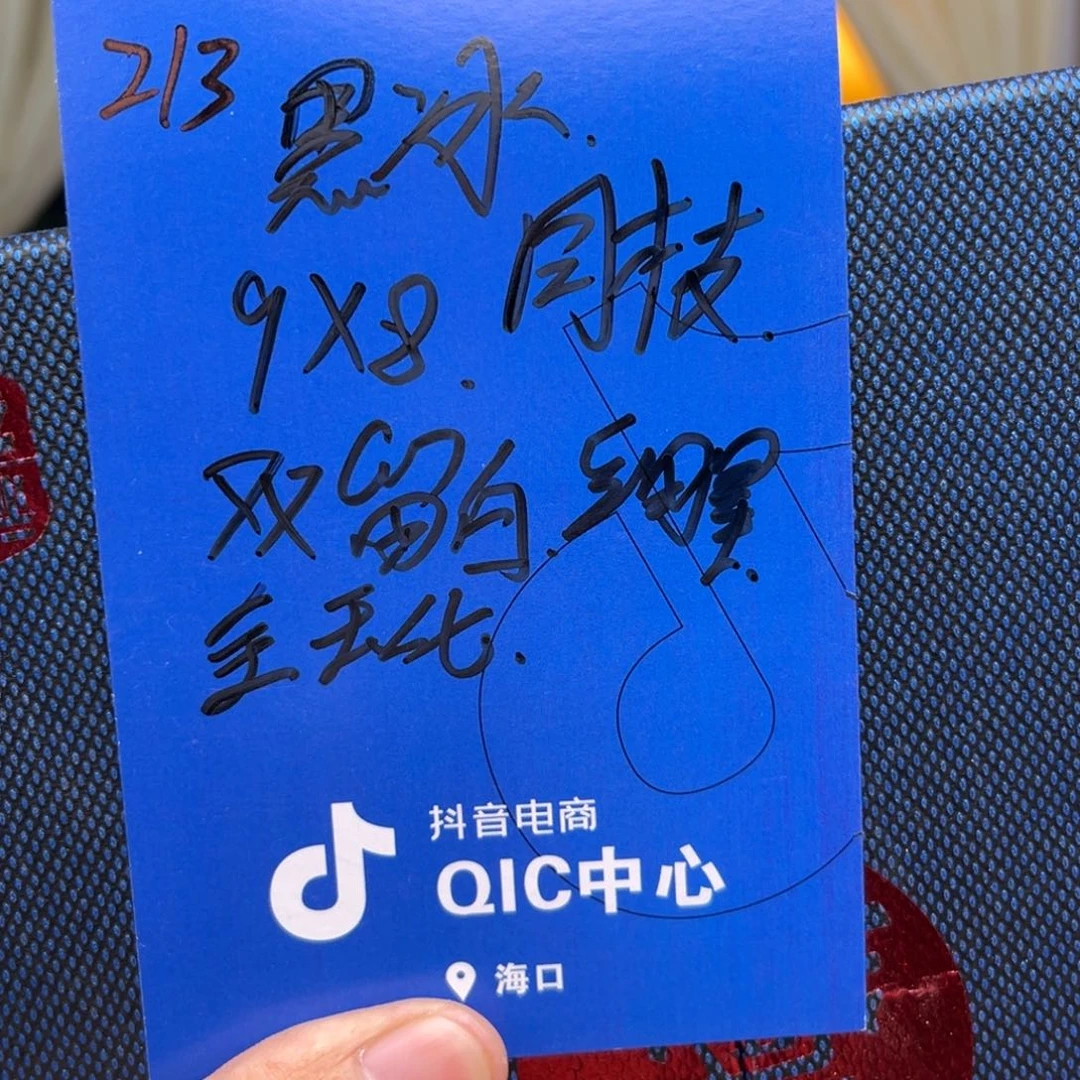 213
黑冰.
同枝
9X8.
双留白.
全玉化.
抖音电商
QIC中心
海口